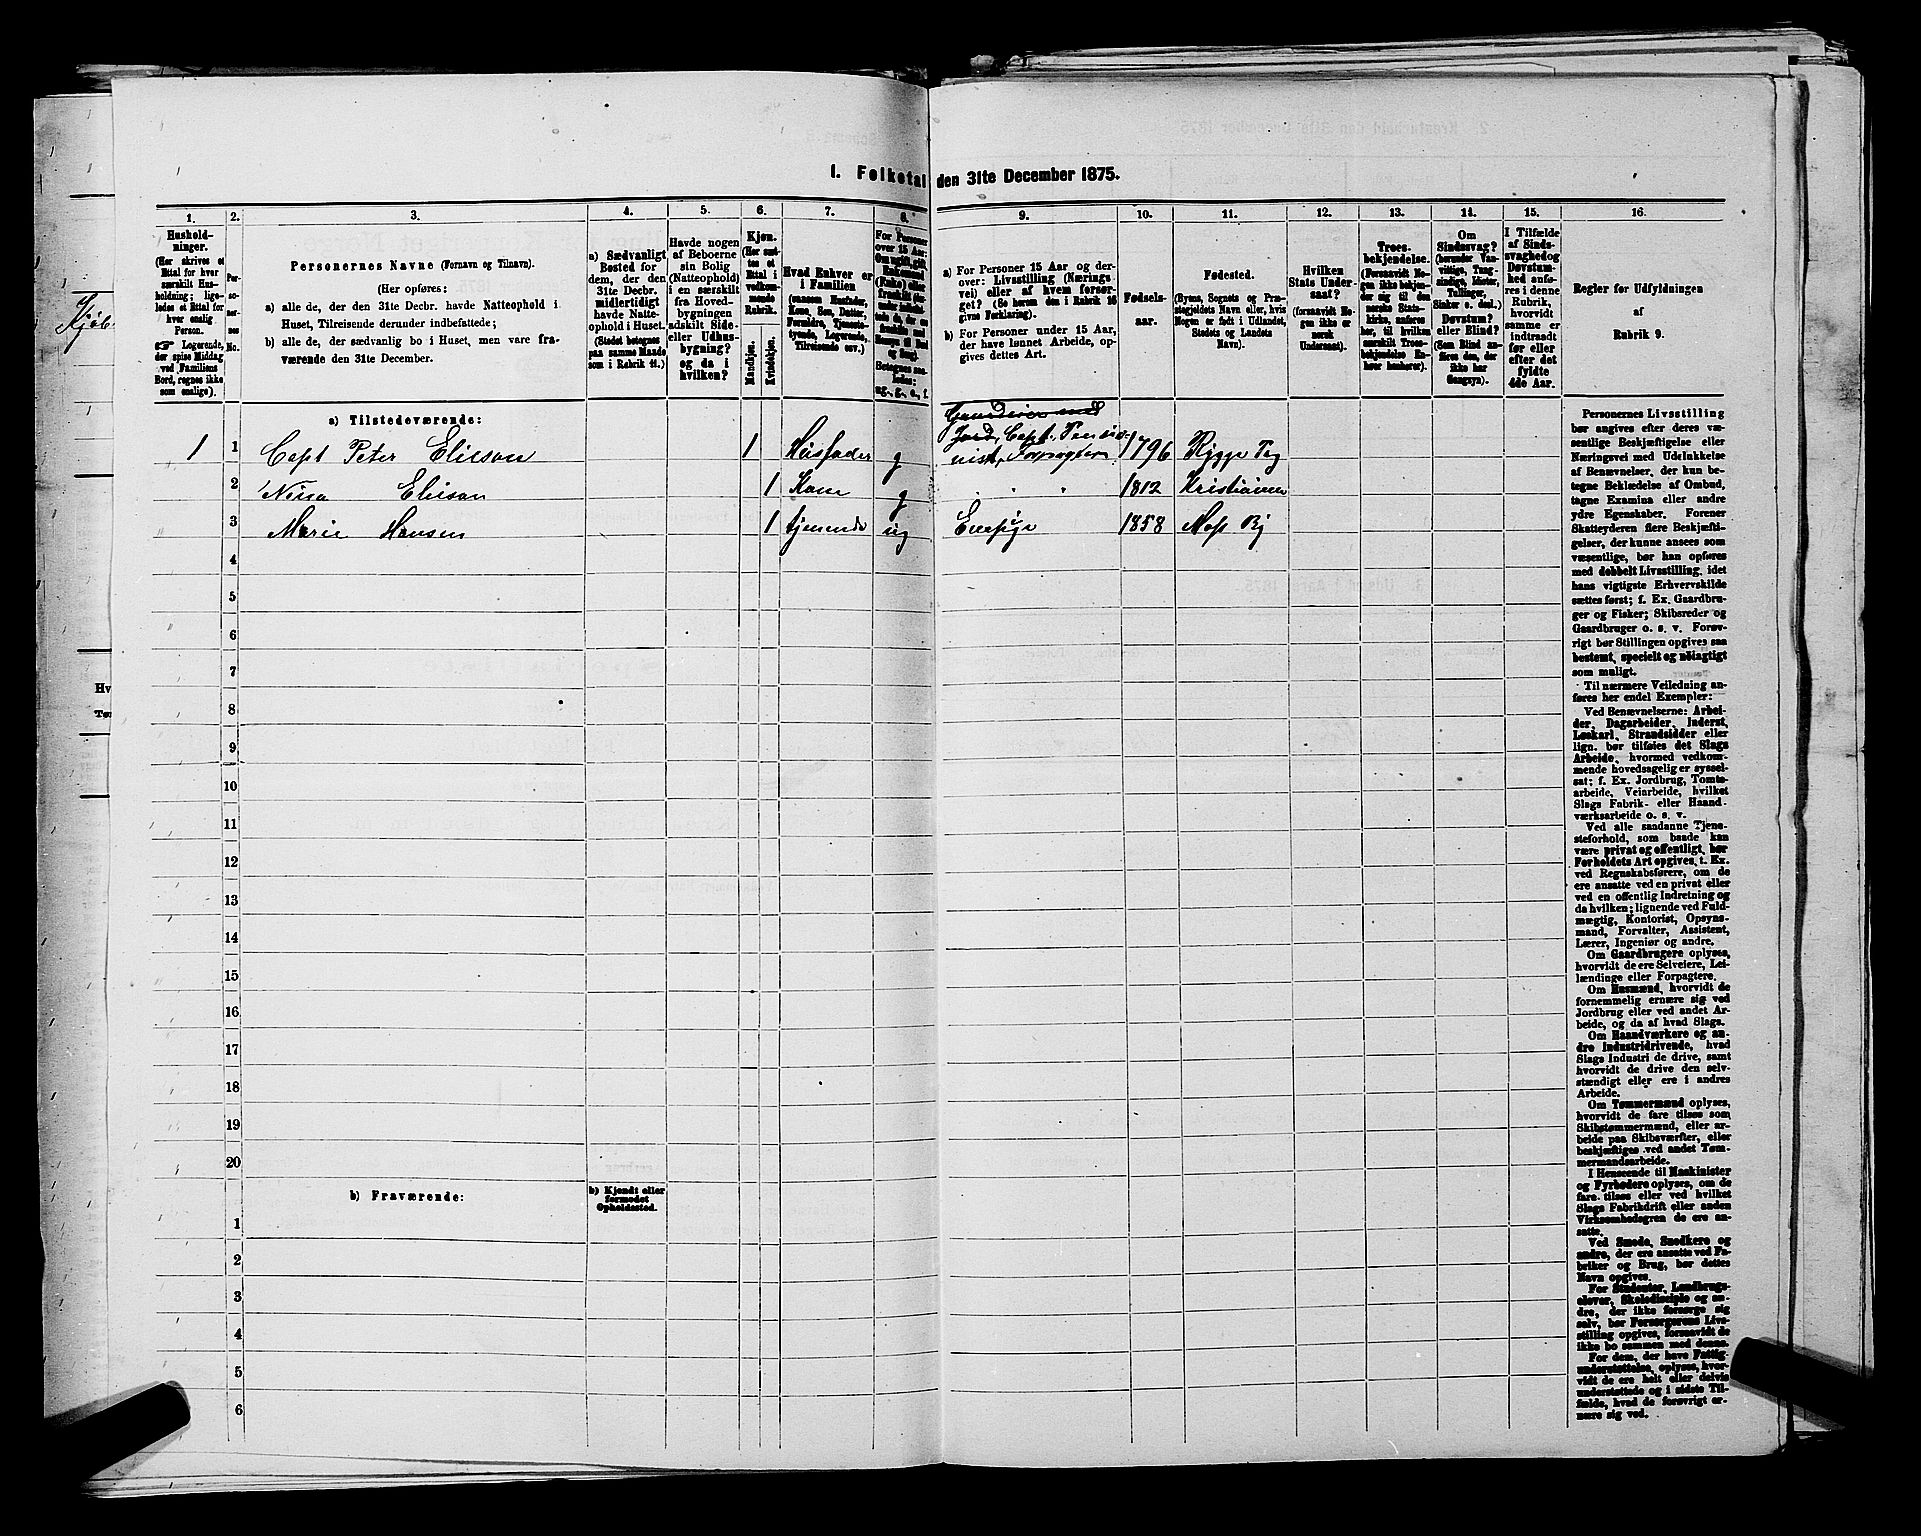 1. Folketal den 31te December 1875.
1.
2.
3.
4.
5.
6.
7.
8.
9.
10.
11.
12.
13.
14.
15.
16.
Hushold-
ninger.
(Her skrives et
Ettal for hver
særskilt Hus-
holdning; lige-
ledes et Ettal for
hver enslig
Person.
☞ Logerende,
der spise Middag
ved Familiens
Bord, regnes ikke
som enslige).
Per-
so-
ner-
nes
No.
Personernes Navne (Fornavn og Tilnavn).
(Her opføres:
a) alle de, der den 31te Decbr. havde Natteophold i
Huset, Tilreisende derunder indbefattede;
b) alle de, der sædvanlig bo i Huset, men vare fra-
værende den 31te December.
a) Sædvanligt
Bosted for
dem, der den
31te Decbr.
midlertidigt
havde Natte-
ophold i Huset.
(Stedet betegnes
paa samme Maade
som i Rubrik 11.)
Havde nogen
af Beboerne
sin Bolig
(Natteophold)
i en særskilt
fra Hoved-
bygningen
adskilt Side-
eller Udhus-
bygning?
og da i
hvilken?
Kjøn.
(Her sæt-
tes et
Ettal i
vedkom-
mende
Rubrik.
Mandkjøn.
Kvindekjøn.
Hvad Enhver er
i Familien
(saasom Husfader,
Kone, Søn, Datter,
Forældre, Tjeneste-
tyende, Logerende,
Tilreisende osv.)
For Personer
over 15 Aar:
Om ugift, gift,
Enkemand
(Enke) eller
fraskilt
a) For Personer 15 Aar og der-
over: Livsstilling (Nærings-
vei) eller af hvem forsør-
get? (Se herom den i Rubrik 16
givne Forklaring).
b) For Personer under 15 Aar,
der have lønnet Arbeide, op-
gives dettes Art.
Fødsels-
aar.
Fødested.
(Byens, Sognets og Præ-
stegjeldets Navn eller, hvis
Nogen er født i Udlandet,
Stedets og Landets
Navn).
Hvilken
Stats Under-
saat?
(forsaavidt No-
gen ikke er
norsk
Undersaat).
Troes-
bekjendelse.
(Forsaavidt No-
gen ikke bekjen-
der sig til den
norske Stats-
kirke, anføres
her, til hvilken
særskilt Troes-
bekjendelse En-
hver henhører).
Om
Sindssvag?
(herunder Van-
vittige, Tung-
sindige, Idioter,
Tullinger,
Sinker o. desl.)
Døvstum?
eller Blind?
(Som Blind an-
føres den, der
ikke har
Gangsyn).
I Tilfælde
af Sinds-
svaghed og
Døvstum-
hed anfø-
res i denne
Rubrik,
hvorvidt
samme er
indtraadt
før eller
efter det
fyldte
4de Aar.
Regler for Udfyldningen
af
Rubrik 9.
a) Tilstedeværende:
1 1 Capt Peter Elieson 1 Husfader g Jord, Capt. Pensio-
nist, Forpagter 1796 Rygge
2 Elieson 1 Kone g 1812
3 Marie Hansen 1 tjenende ug 1858
4
5
6
7
8
9
10
11
12
13
14
15
16
17
18
19
20
b) Fraværende:
b) Kjendt eller
formodet
Opholdssted.
1
2
3
4
5
6
Personernes Livsstilling
bør angives efter deres væ-
sentlige Beskjæftigelse eller
Næringsvei med Udelukkelse
af Benævnelser, der kun be-
tegne Beklædelse af Ombud,
tagne Examina eller andre
ydre Egenskaber. Forener
Skatteyderen flere Beskjæfti-
gelser, der kunne ansees som
væsentlige, bør han opføres
med dobbelt Livsstilling, idet
hans vigtigste Erhvervskilde
sættes først; f. Ex. Gaardbru-
ger og Fisker; Skibsreder og
Gaardbruger o. s. v. Forøv-
rigt bør Stillingen opgives saa
bestemt, specielt og nøiagtigt
som muligt.
Til nærmere Veiledning an-
føres her endel Exempler:
Ved Benævnelserne: Arbei-
der, Dagarbeider, Inderst,
Løskarl, Strandsidder eller
lign. bør tilføies det Slags
Arbeide, hvormed vedkom-
mende hovedsagelig er syssel-
sat; f. Ex. Jordbrug, Tomte-
arbeide, Veiarbeide, hvilket
Slags Fabrik- eller Haand-
værksarbeide o. s. v.
Ved alle saadanne Tjene-
steforhold, som baade kan
være privat og offentligt, bør
Forholdets Art opgives, f. Ex.
ved Regnskabsførere, om de
ere ansatte ved en privat eller
ved en offentlig Indretning og
da hvilken; lignende ved Fuld-
mægtig, Kontorist, Opsyns-
mand, Forvalter, Assistent,
Lærer, Ingeniør og andre.
Om Gaardbrugere oplyses,
hvorvidt de ere Selveiere, Lei-
lændinge eller Forpagtere.
Om Husmænd, hvorvidt de
fornemmelig ernære sig ved
Jordbrug eller ved andet Ar-
beide, og da af hvad Slags.
Om Haandværkere og an-
dre Industridrivende, hvad
Slags Industri de drive, samt
hvorvidt de drive den selv-
stændigt eller ere i andres
Arbeide.
Om Tømmermænd oplyses,
hvorvidt de fare tilsøs som
Skibstømmermænd, eller ar-
beide paa Skibsværfter, eller
beskjæftiges ved andet Tøm-
mermandsarbeide.
I Henseende til Maskinister
og Fyrbødere oplyses, om de
fare tilsøs eller ved hvilket
Slags Fabrikdrift eller anden
Virksomhedsgren de ere an-
satte.
Ved Smede, Snedkere og
andre, der ere ansatte ved Fa-
briker og Brug, bør dettes
Navn opgives.
For Studenter, Landbrugs-
elever, Skoledisciple og an-
dre, der ikke forsørge sig
selv, bør Forsørgerens Livs-
stilling opgives, forsaavidt de
ikke bo sammen med denne.
For dem, der have Fattig-
understøttelse, oplyses, hvor-
vidt de ere helt eller delvis
understøttede og i sidste Til-
fælde, hvad de forøvrigt er-
nære sig ved.